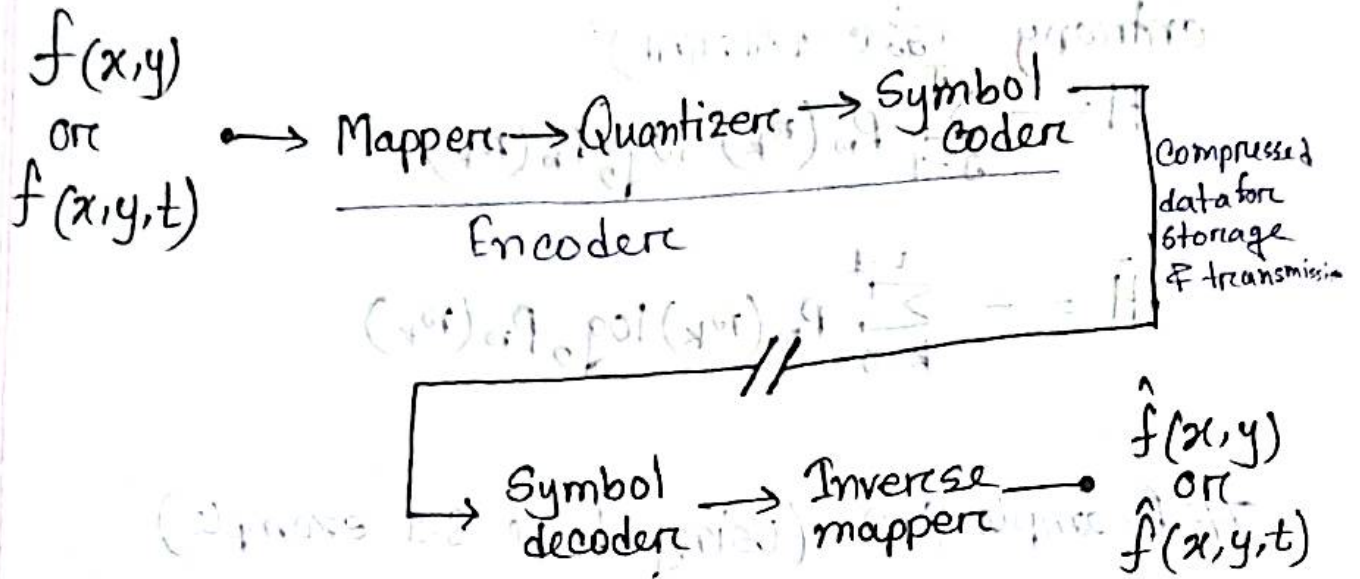 f(x,y)
or
f(x,y,t)
Mapper → Quantizer → Symbol coder
Encoder
Compressed
data for
storage
& transmission
Symbol decoder → Inverse mapper
f̂(x,y)
or
f̂(x,y,t)